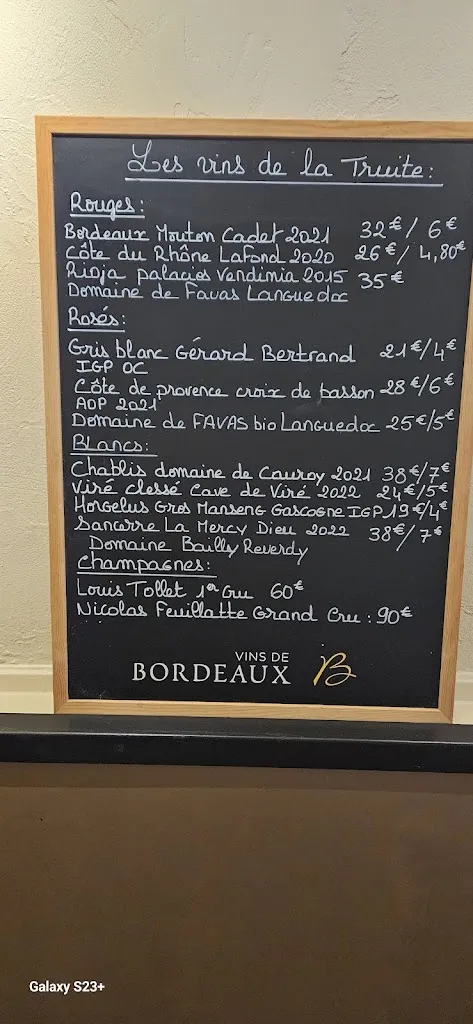 Les vins de la Truite:
Rouges:
Bordeaux Mouton Cadet 2021 32€/ 6€
Côte du Rhône Lafond 2020 26€/ 4,80€
Rioja palacios Vendimia 2015 35€
Domaine de Favas Languedoc
Rosés:
Gris blanc Gérard Bertrand 21€/4€
IGP OC
Côte de provence croix de basson 28€/6€
AOP 2021
Domaine de FAVAS bio Languedoc 25€/5€
Blancs:
Chablis domaine de Cauroy 2021 38€/7€
Viré clessé Cave de Viré 2022 24€/5€
Horgelus Gros Manseng Gascogne IGP 19€/4€
Sancerre La Mercy Dieu 2022 38€/7€
Domaine Bailly Reverdy
Champagnes:
Louis Tollet 1er Cru 60€
Nicolas Feuillatte Grand Cru : 90€
VINS DE
BORDEAUX B
Galaxy S23+